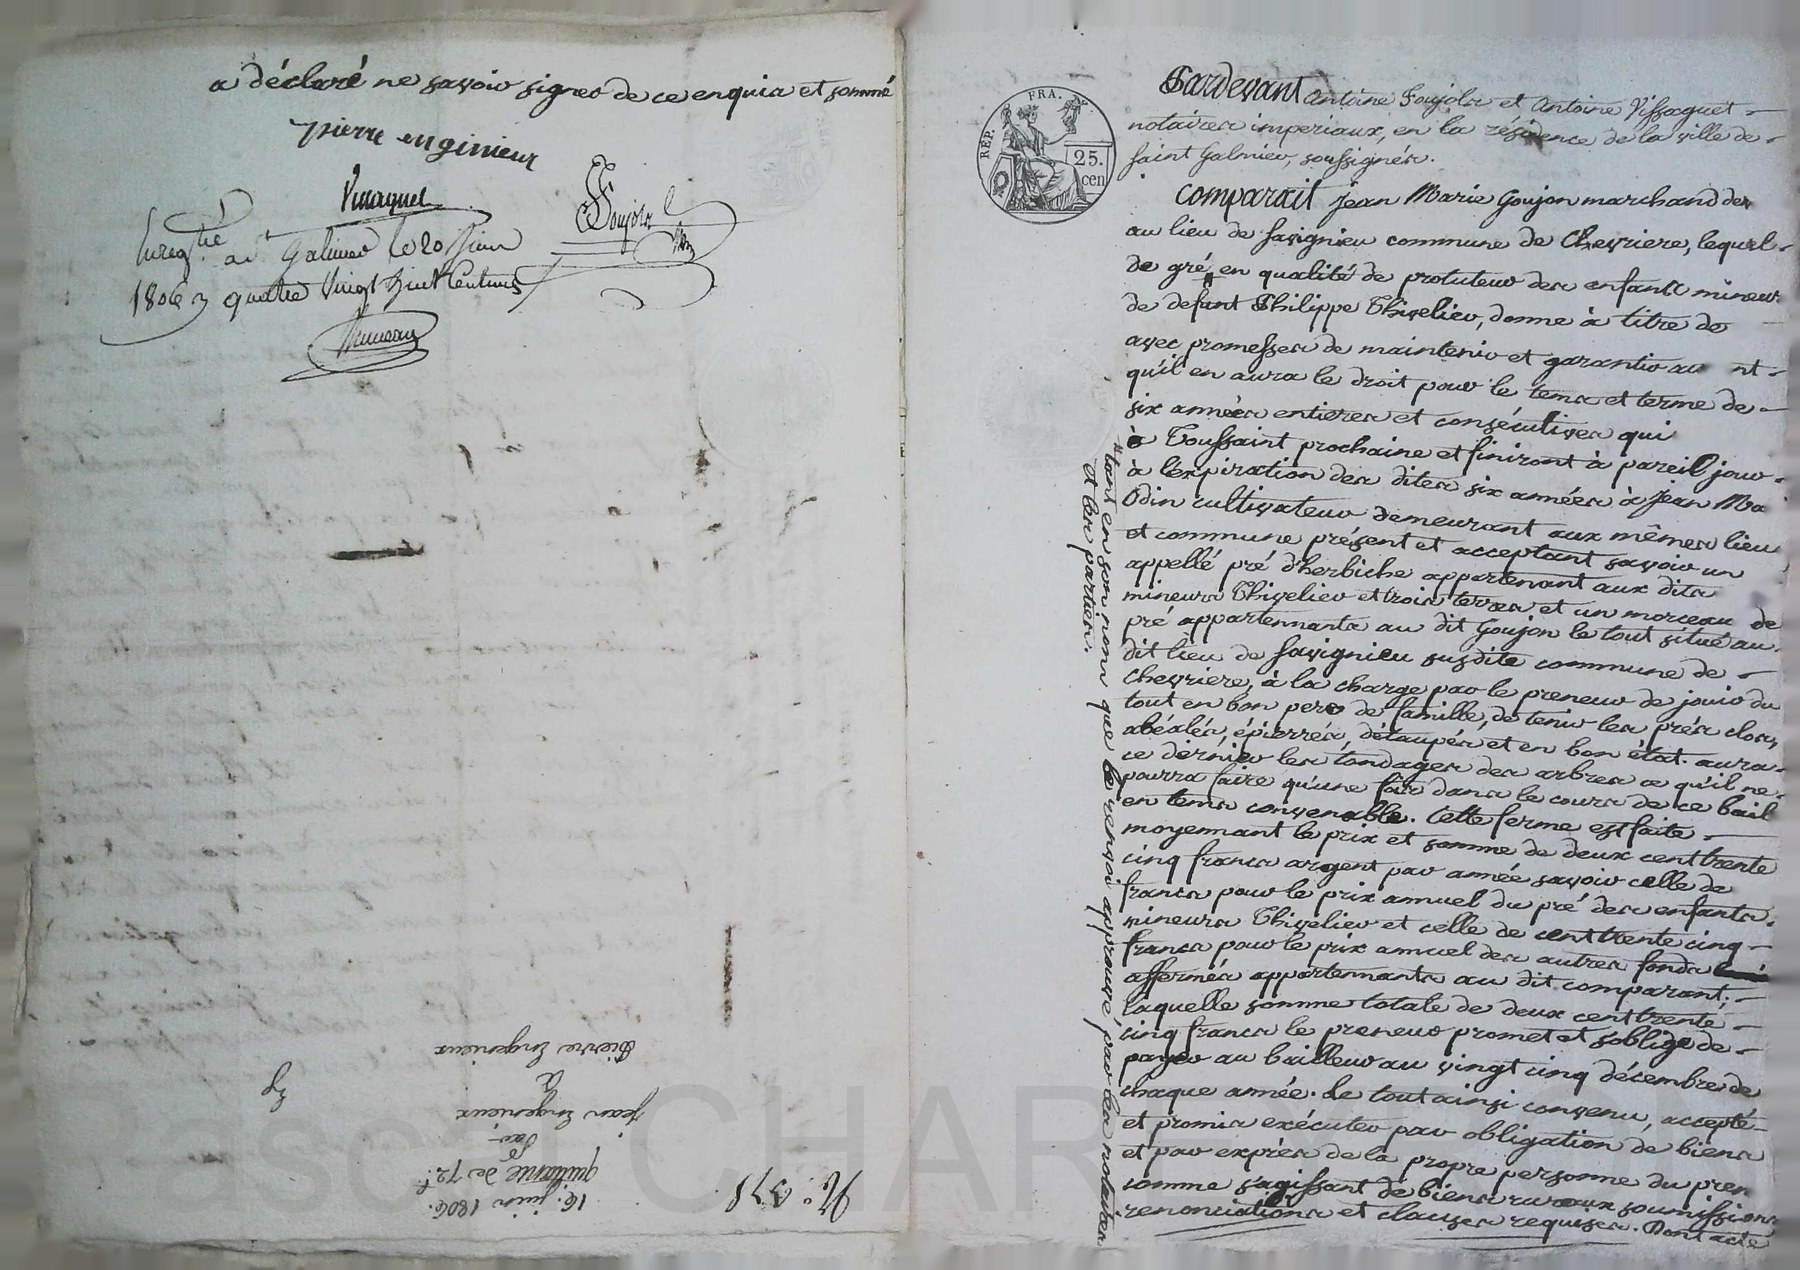 a déclaré ne savoir signer de ce enquis et sommé
pierre enginieur
Vissaguet
Foujols
Enregtré à St Galmier le 20 juin
1806 quatre vingt huit centimes
Pardevant Antoine Foujols et Antoine Vissaguet
notaires imperiaux, en la résidence de la ville de
saint Galmier, soussignés.
REP. FRA.
25.
cen
comparait Jean Marie Goujon marchand de
au lieu de savignieu commune de Chevriere, lequel
de gré, en qualité de protuteur des enfants mineurs
de defunt Philippe Thivelier, donne à titre de
avec promesses de maintenir et garantir au nt
qu'il en aura le droit pour le tems et terme de
six années entieres et consécutives qui
à Toussaint prochaine et finiront à pareil jour
à l'expiration des dites six années à Jean Ma
Odin cultivateur demeurant aux mêmes lieu
et commune présent et acceptant savoir un
appellé pré d'herbiche appartenant aux dits
mineurs Thivelier et trois terres et un morceau de
pré appartennants au dit Goujon le tout situé au
dit lieu de savignieu susdite commune de
chevriere, à la charge par le preneur de jouir du
tout en bon pere de famille, de tenir les prés clos,
abéalés, épierrés, détaupés et en bon état. aura
ce dérnier les tondages des arbres ce qu'il ne
pourra faire qu'une fois dans le cours de ce bail
en tems convenable. Cette ferme est faite
moyennant le prix et somme de deux cent trente
cinq francs argent par année savoir celle de
francs pour le prix annuel du pré des enfants
mineurs Thivelier et celle de cent trente cinq
francs pour le prix annuel des autres fonds
affermés appartennants au dit comparant;
laquelle somme totale de deux cent trente
cinq francs le preneur promet et s'oblige de
payer au bailleur au vingt cinq décembre de
chaque année. Le tout ainsi convenu, accepté
et promis exécuter par obligation de biens
et par exprés de la propre personne du pren
comme s'agissant de biens ruraux soumissions
renonciations et clauses requises. Dont acte
tant en son nom que le renvoi approuvé par les notaires
et les parties.
16. juin 1806.
quittance de 72 f.
par
jean Engenieux
à
Pierre Engenieux
N.° 378
Pascal CHAR ON